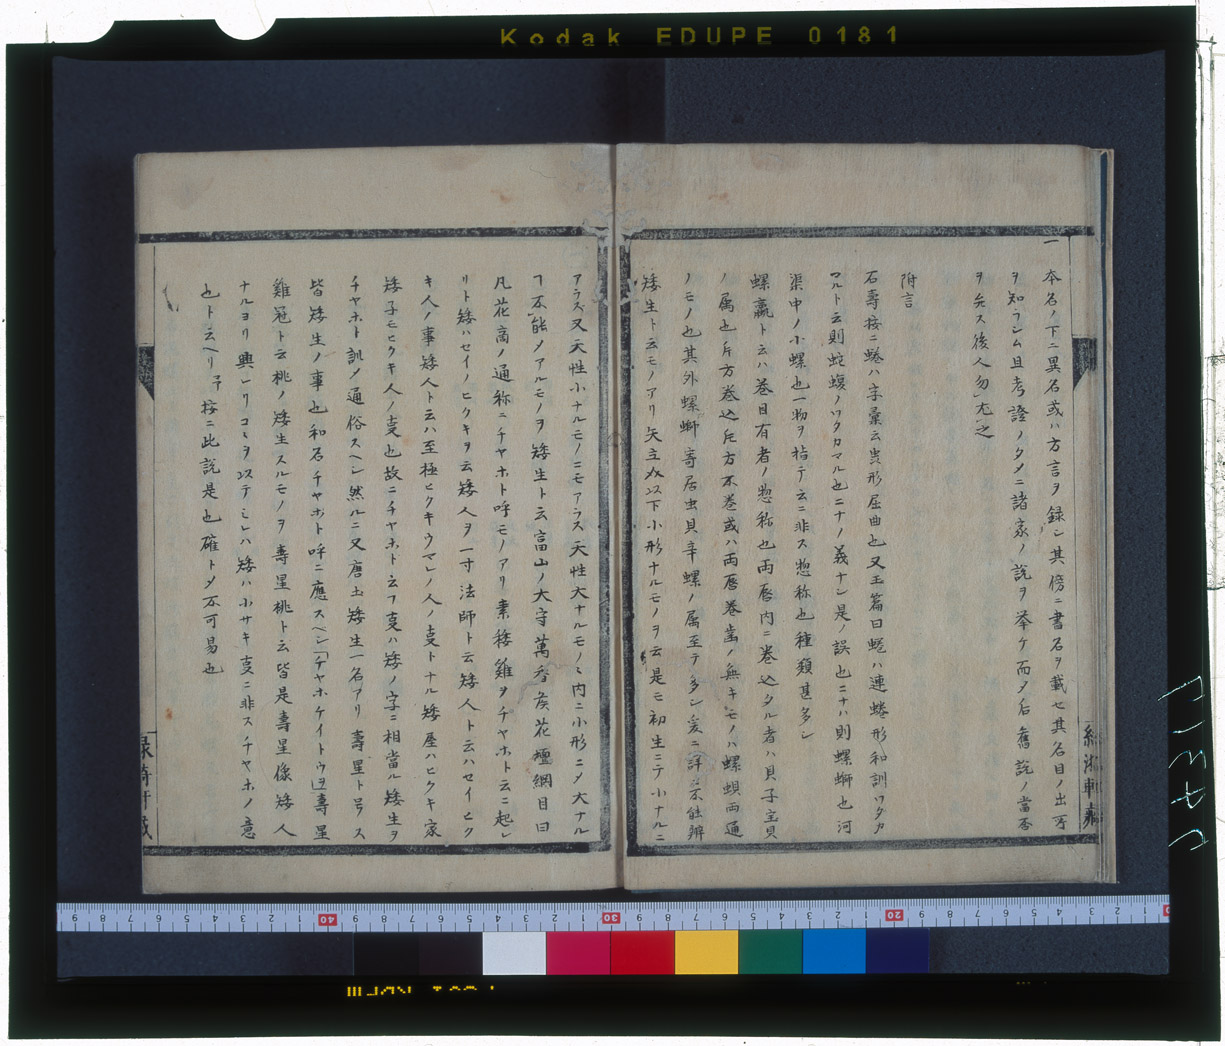 Kodak EDUPE 0181
一 本名ノ下ニ異名或ハ方言ヲ録シ其傍ニ書名ヲ載セ其名目ノ出所
ヲ知ラシム且考證ノタメニ諸家ノ説ヲ挙ケ而〆后舊説ノ當否
ヲ弁ス後人勿尤之
附言
石壽按ニ蜷ハ字彙云虫形屈曲也又玉篇曰蜷ハ連蜷形和訓ワタカ
マルト云則蛇蝮ノワタカマル也ニナノ義ナシ是ノ誤也ニナハ則螺螄也河
渠中ノ小螺也一物ヲ指テ云ニ非ス惣称也種類甚多シ
螺蠃ト云ハ巻目有者ノ惣称也両唇内ニ巻込タル者ハ貝子宝貝
ノ属也片方巻込片方不巻或ハ両唇巻歯ノ無キモノハ螺螄両通
ノモノ也其外螺螄寄居虫貝辛螺ノ属至テ多シ爰ニ詳ニ不能辨
矮生ト云モノアリ矢立以下小形ナルモノヲ云是モ初生ニテ小ナルニ
アラス又天性小ナルモノニモアラス天性大ナルモノヽ内ニ小形ニ〆大ナル
ヿ不能〆アルモノヲ矮生ト云富山ノ大守萬香矦花壇綱目曰
凡花高ノ通称ニチヤホト呼モノアリ素矮雞ヲチヤホト云ニ起レ
リト矮ハセイノヒクキヲ云矮人ヲ一寸法師ト云矮人ト云ハセイヒク
キ人ノ事矮人ト云ハ至極ヒクキウマレノ人ノ支トナル矮屋ハヒクキ家
矮子モヒクキ人ノ支也故ニチヤホト云フ支ハ矮ノ字ニ相當ル矮生ヲ
チヤホト訓〆通俗スヘシ然ルニ又唐土矮生一名アリ壽星ト号ス
皆矮生ノ事也和名チヤホト呼ニ應スヘシ「チヤホケイトウ」ヲ壽星
雞冠ト云桃ノ矮生スルモノヲ壽星桃ト云皆是壽星像矮人
ナルヨリ興レリコヽヲ以テミレハ矮ハ小サキ支ニ非スチヤホノ意
也ト云ヘリ予按ニ此説是也確ト〆不可易也